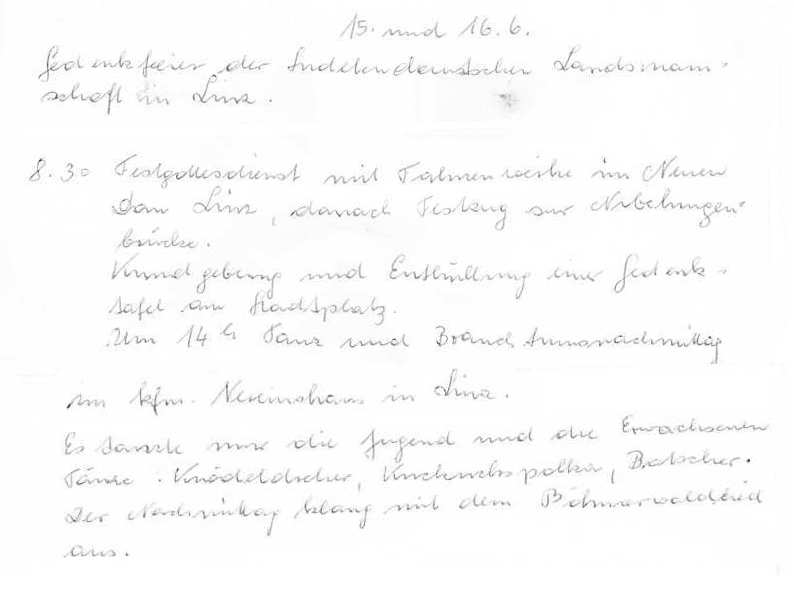 15. und 16.6.
Gedenkfeier der Sudetendeutschen Landsmann-
schaft in Linz.
8.30 Festgottesdienst mit Fahnenweihe im Neuen
Dom Linz, danach Festzug zur Nibelungen-
brücke.
Kundgebung und Enthüllung einer Gedenk-
tafel am Stadtplatz.
Um 14h Tanz und Brauchtumsnachmittag
im kfm. Vereinshaus in Linz.
Es tanzte nur die Jugend und die Erwachsenen
Tänze: Knödeldscher, Kuckuckspolka, Batscher.
Der Nachmittag klang mit dem Böhmerwaldlied
aus.